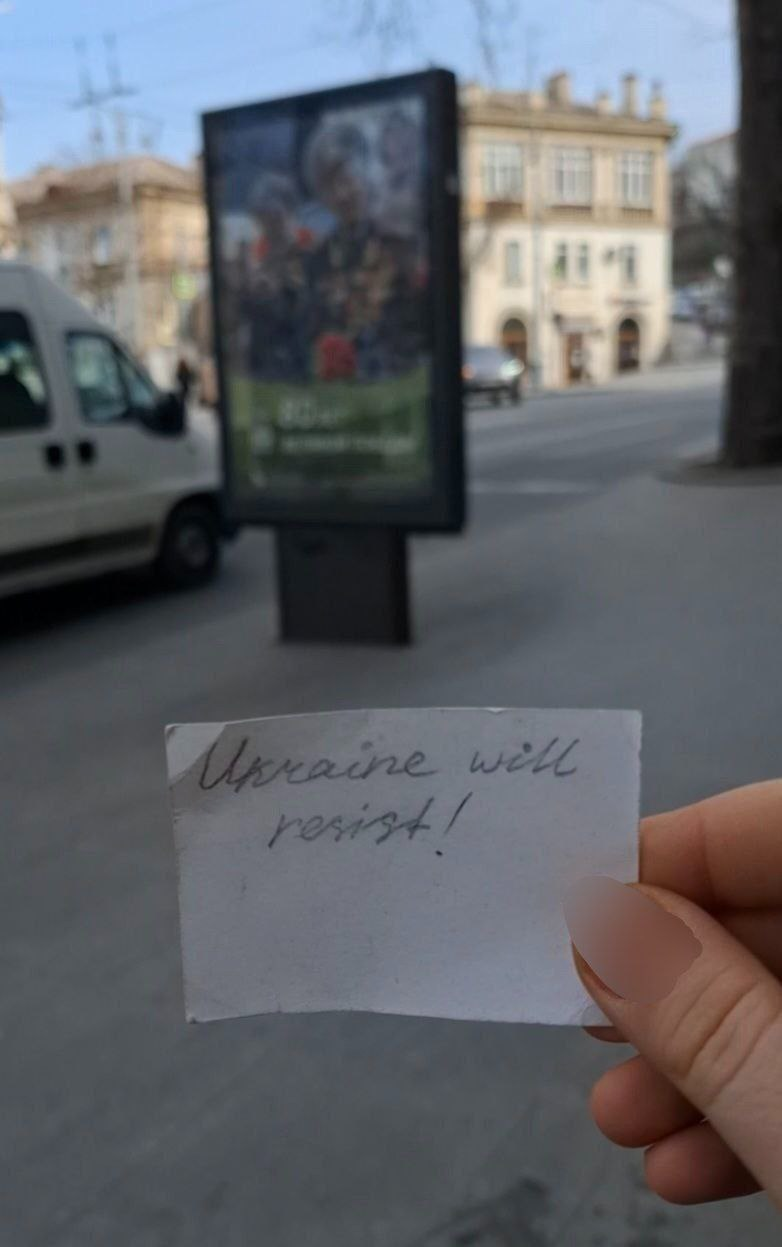 Ukraine will
resist!
80